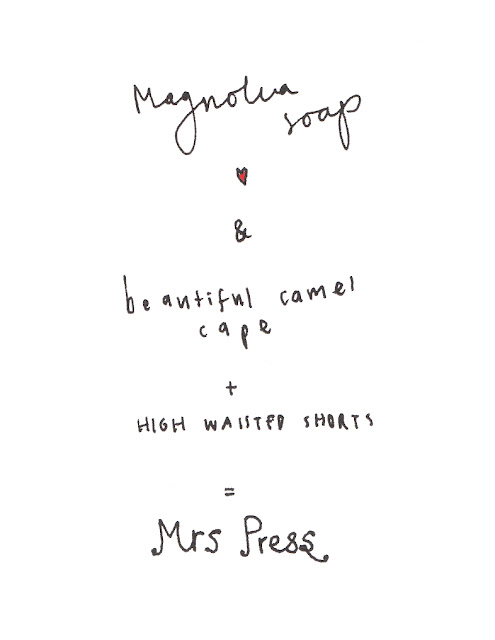 Magnolia
soap
♥
&
beautiful camel
cape
+
HIGH WAISTED SHORTS
=
Mrs Press